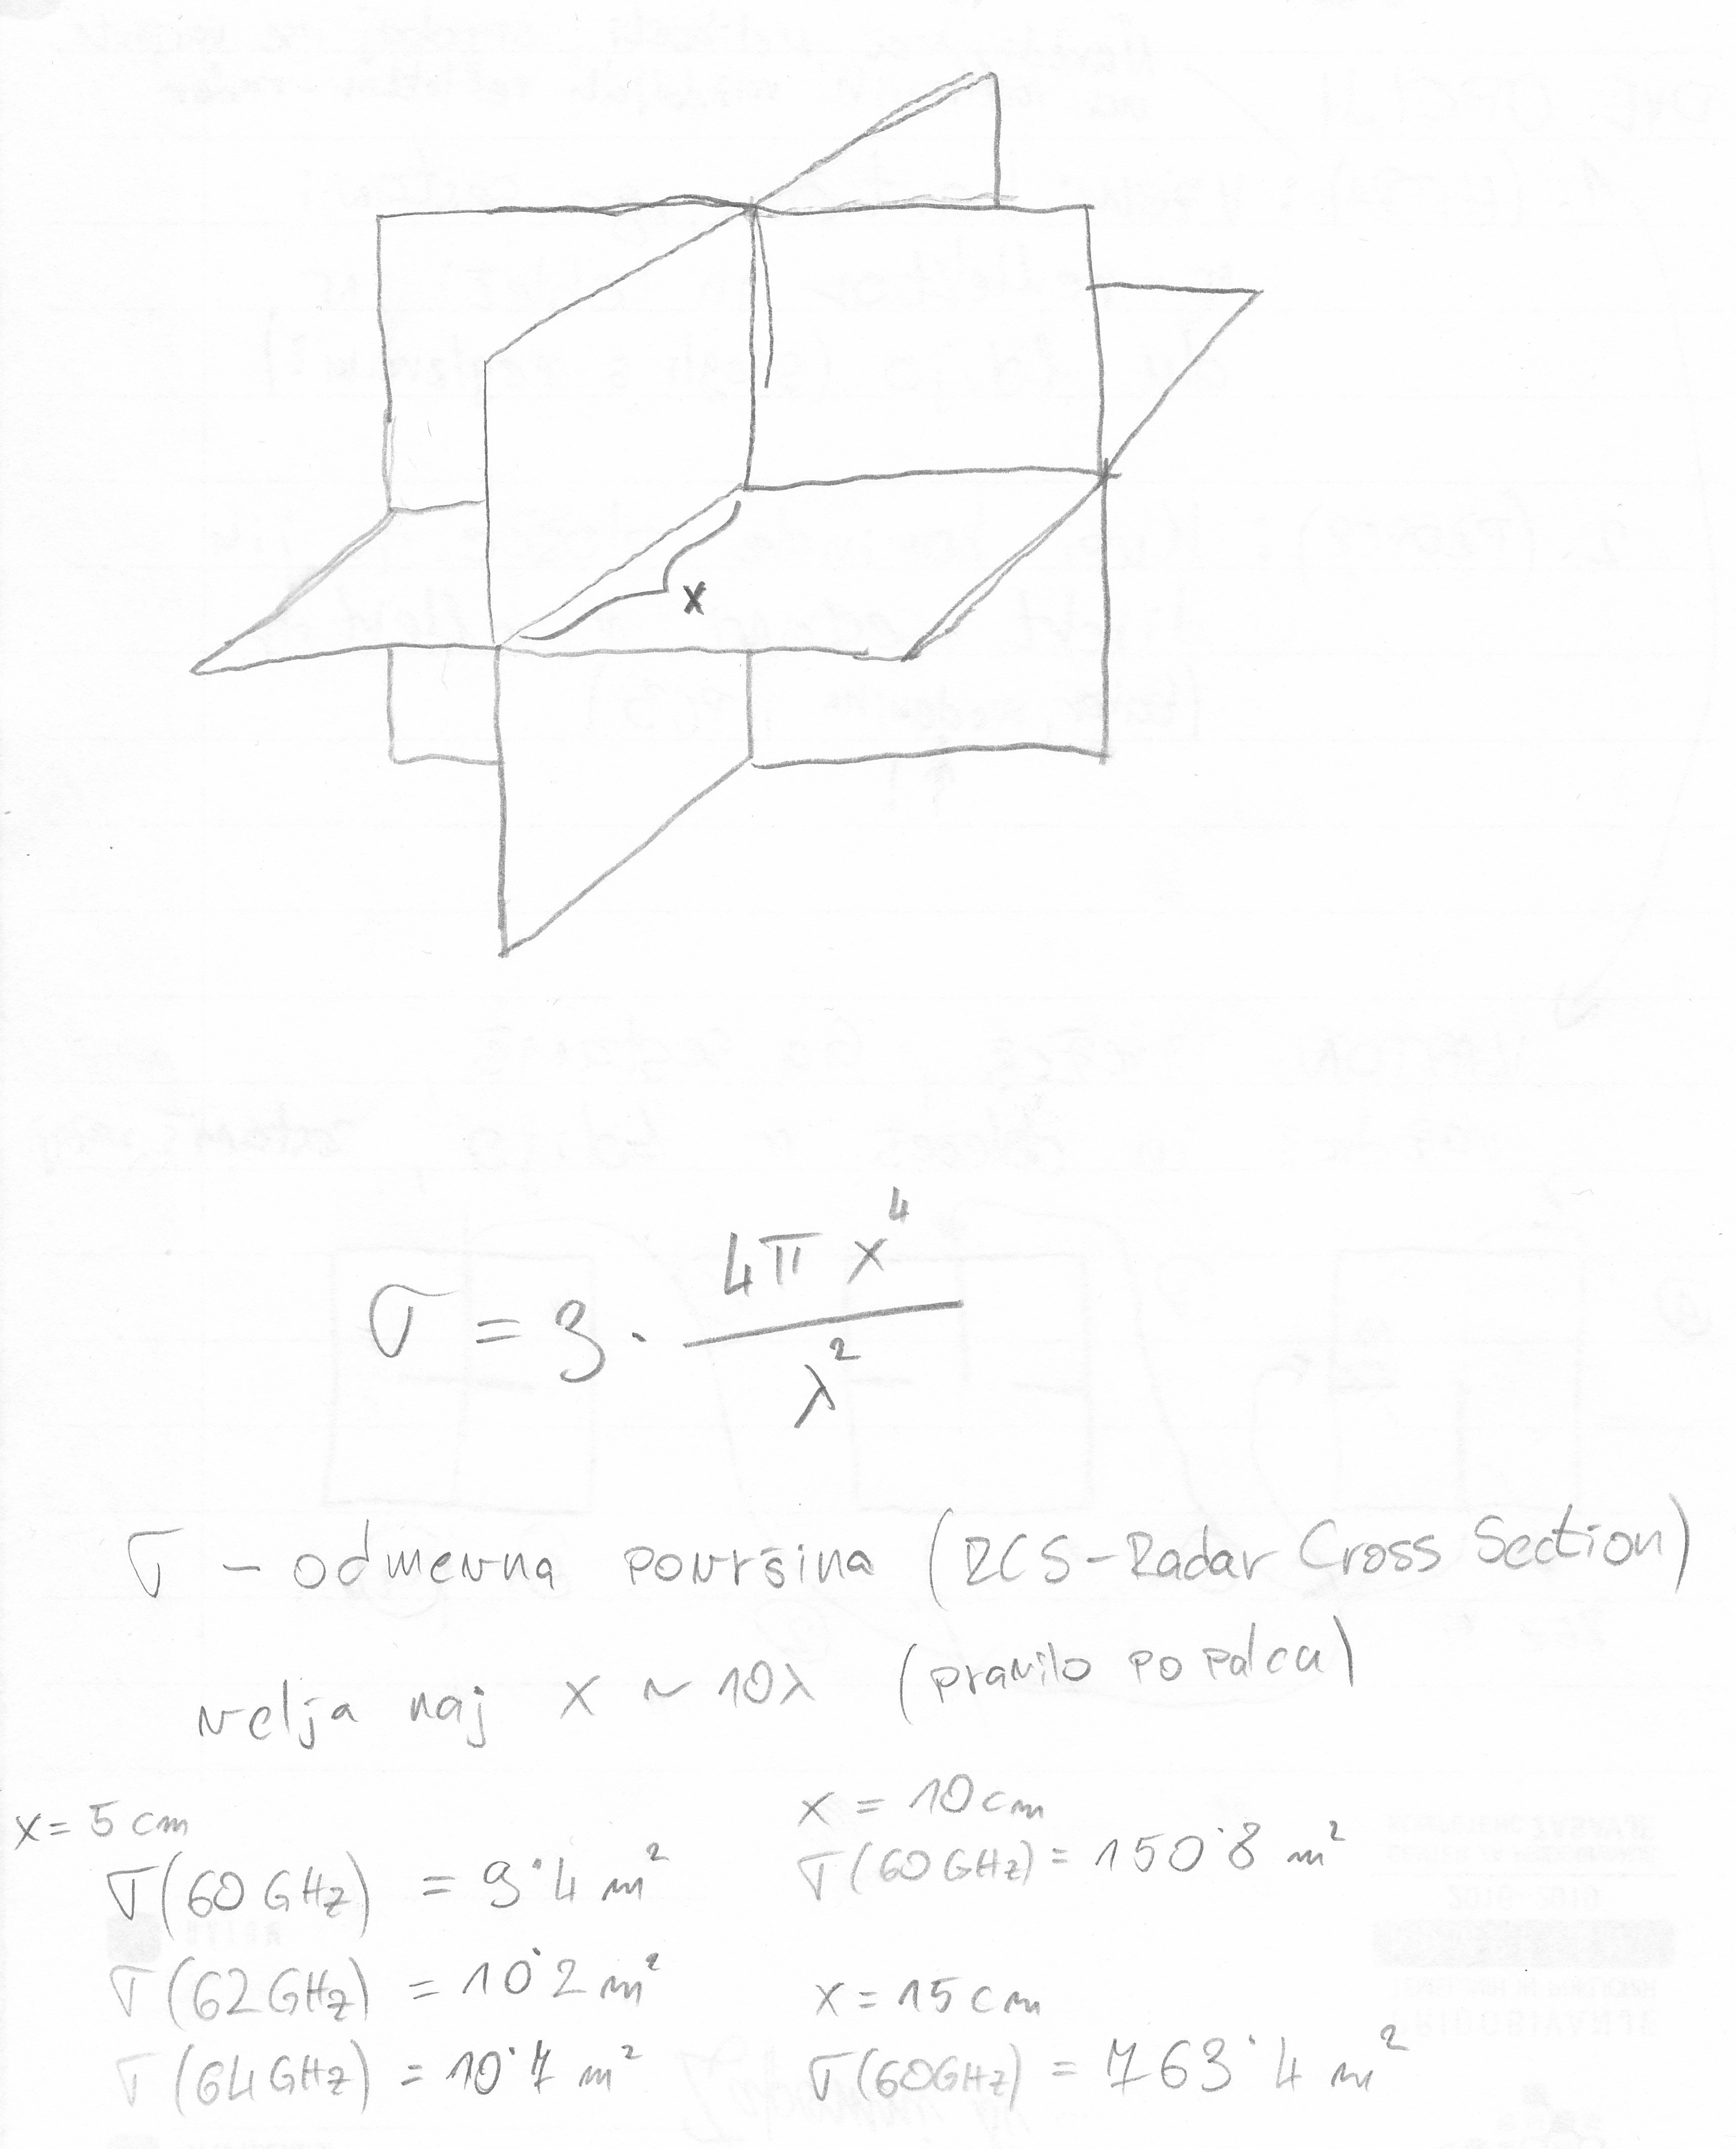 x
σ = 3 · 4π x⁴ / λ²
σ - odmevna površina (RCS-Radar Cross Section)
velja naj x ~ 10λ (pravilo po palcu)
x = 5 cm
σ(60 GHz) = 9˙4 m²
σ(62 GHz) = 10˙2 m²
σ(64 GHz) = 10˙7 m²
x = 10 cm
σ(60 GHz) = 150˙8 m²
x = 15 cm
σ(60 GHz) = 763˙4 m²